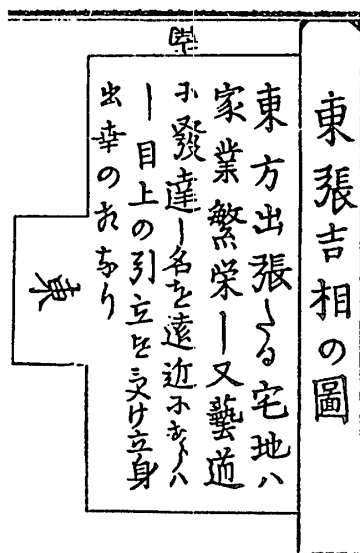 東張吉相の圖
南
東方出張たる宅地ハ
家業繁栄し又藝道
に發達し名を遠近にあらハ
し目上の引立を受け立身
出幸の相なり
東